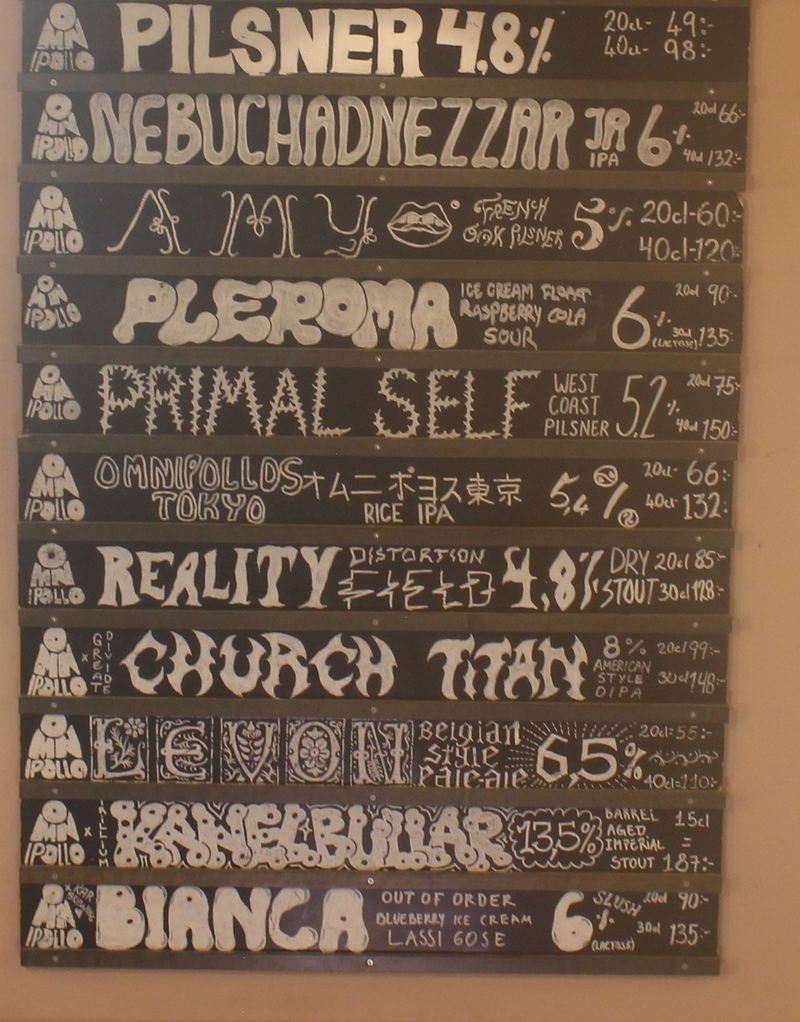 OMNIPOLLO PILSNER 4,8% 20cl- 49:-
40cl- 98:-
OMNIPOLLO NEBUCHADNEZZAR JR IPA 6% 20cl 66:-
40cl 132:-
OMNIPOLLO AMY FRENCH OAK PILSNER 5% 20cl-60:-
40cl-120:-
OMNIPOLLO PLEROMA ICE CREAM FLOAT 6% 20cl 90:-
RASPBERRY COLA
SOUR (LACTOSE) 30cl 135:-
OMNIPOLLO PRIMAL SELF WEST COAST PILSNER 5,2% 20cl 75:-
40cl 150:-
OMNIPOLLO OMNIPOLLOS TOKYO オムニポヨス東京 5,4% 20cl- 66:-
RICE IPA 40cl- 132:-
OMNIPOLLO REALITY DISTORTION FIELD 4,8% DRY STOUT 20cl 85:-
30cl 128:-
OMNIPOLLO x GREAT DIVIDE CHURCH TITAN 8% 20cl 99:-
AMERICAN STYLE DIPA 30cl 148:-
OMNIPOLLO LEVON Belgian style pale ale 6,5% 20cl=55:-
40cl=110:-
OMNIPOLLO x KANELBULLAR 13,5% BARREL AGED IMPERIAL STOUT 15cl = 187:-
OMNIPOLLO BIANCA OUT OF ORDER 6% SLUSH 20cl 90:-
BLUEBERRY ICE CREAM
LASSI GOSE (LACTOSE) 30cl 135:-